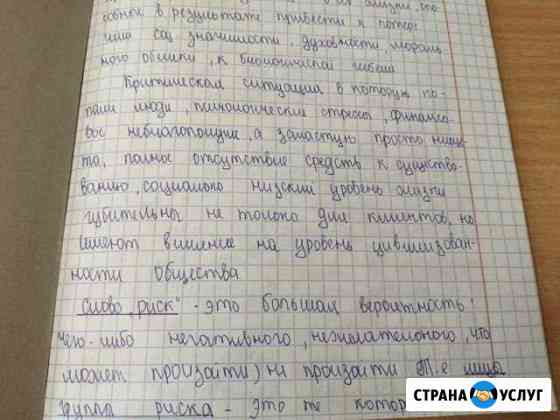 собное в результате привести к потере
ими соц значимости, духовности, мораль
ного облика, к биологической гибели
Критическая ситуация в которую по-
пали люди, психологические стрессы, финансо-
вое неблагополучие, а зачастую просто нище-
та, полное отсутствие средств к существо-
ванию, социально низкий уровень жизни
губительны не только для клиентов, но
имеют влияние на уровень цивилизован-
ности общества
Слово „риск" - это большая вероятность
чего-либо негативного, нежелательного, что
может произойти) не произойти Т.е лица
группа риска - это те
СТРАНА УСЛУГ